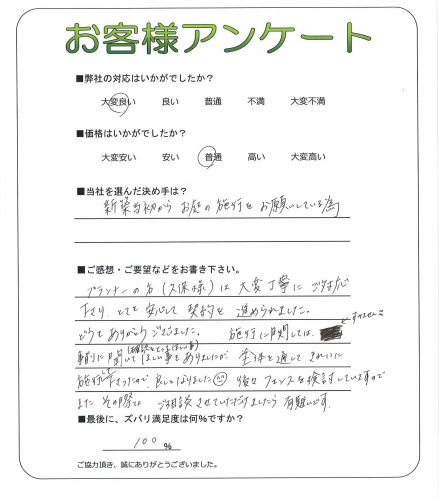 お客様アンケート
■弊社の対応はいかがでしたか?
大変良い 良い 普通 不満 大変不満
■価格はいかがでしたか?
大変安い 安い 普通 高い 大変高い
■当社を選んだ決め手は?
新築当初からお庭の施行をお願いしている為
■ご感想・ご要望などをお書き下さい。
プランナーの方(久保様)は大変丁寧にご対応
下さりとても安心して契約を進められました。
どうもありがとうございました。 施行に関しては、
すみません
(確認をとってほしい事)
事前に聞いてほしい事もありましたが 全体を通してきれいに
施行して下さったので、良しとしました 後々フェンスを検討していますので
またその際は ご相談させていただけましたら有難いです。
■最後に、ズバリ満足度は何%ですか?
100 %
ご協力頂き、誠にありがとうございました。